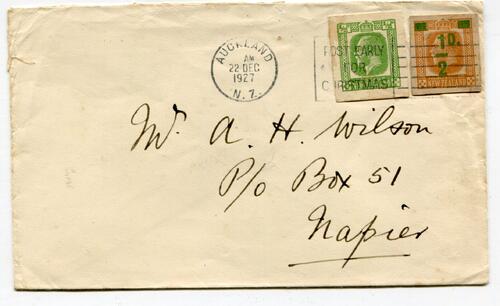 AUCKLAND
AM
22 DEC
1927
N.Z.
POST EARLY
FOR
CHRISTMAS
½D.
NEW ZEALAND
Mr. A. H. Wilson
P/o Box 51
Napier